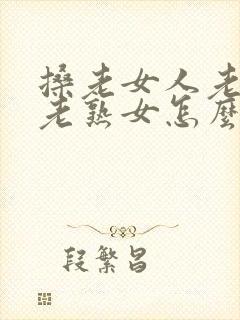 搡老女人老
老熟女怎麼
段繁昌